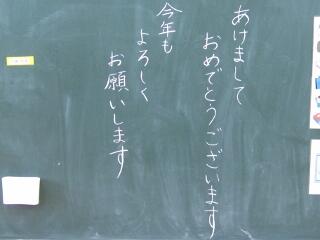 あけまして
おめでとうございます
今年も
よろしく
お願いします